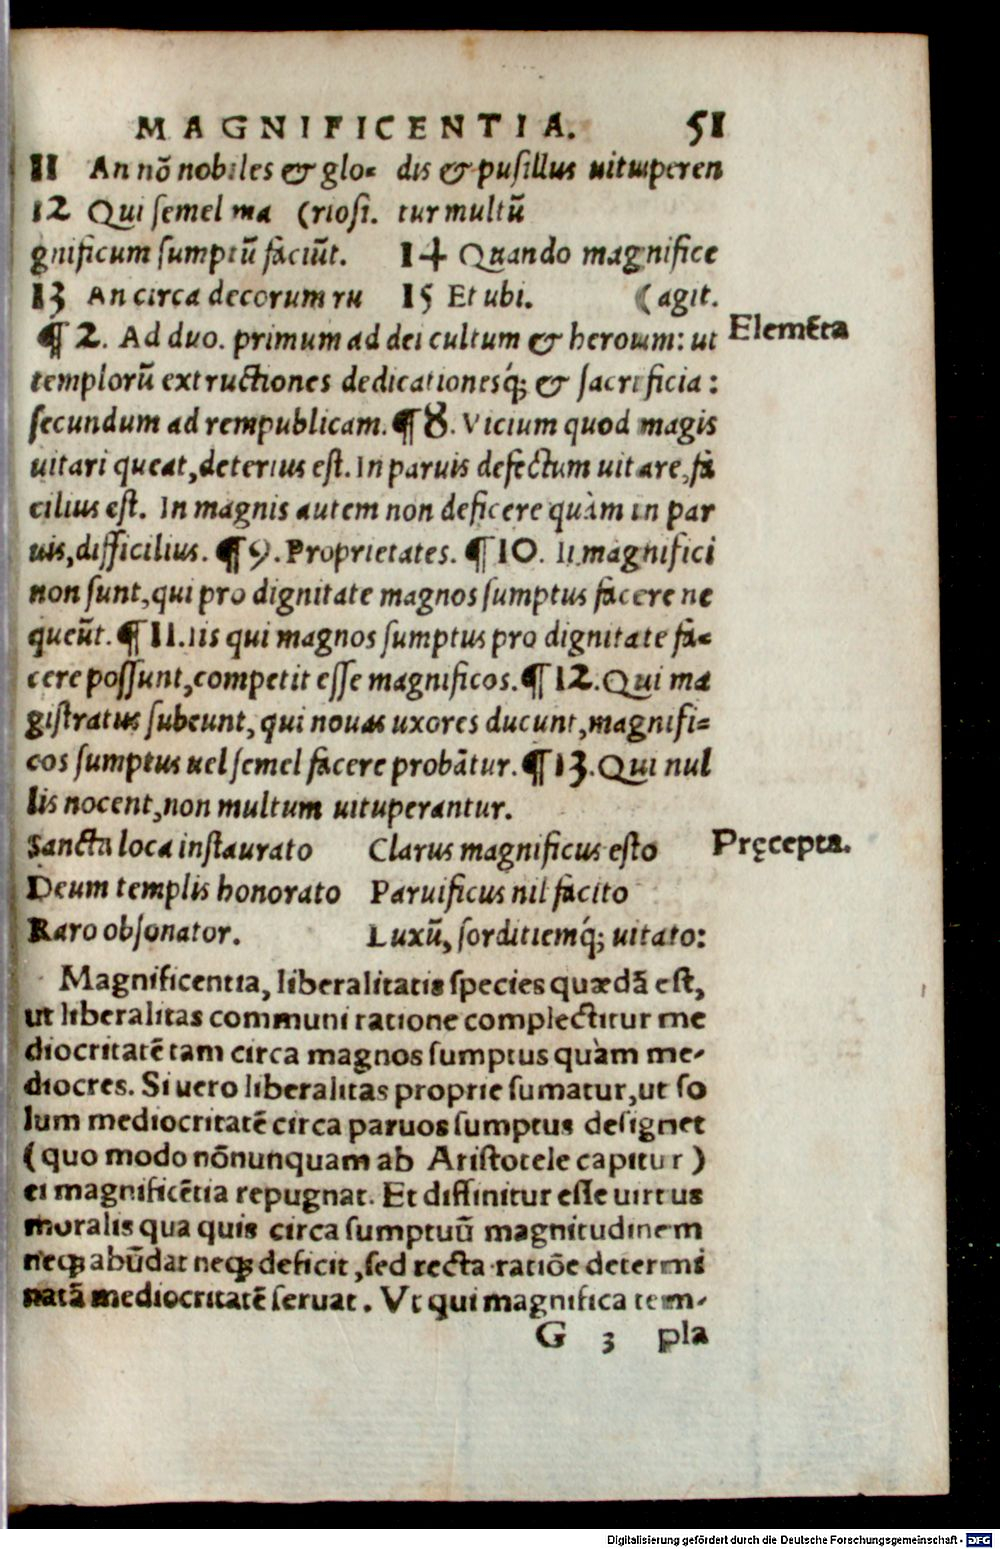 MAGNIFICENTIA. 51
11 An nõ nobiles & glo-
12 Qui semel ma (riosi.
gnificum sumptũ faciũt.
13 An circa decorum ru
dis & pusillus uituperen
tur multũ
14 Quando magnifice
15 Et ubi. (agit.
¶ 2. Ad duo. primum ad dei cultum & heroum: ut
Elemẽta
templorũ extructiones dedicationesq́; & sacrificia:
secundum ad rempublicam. ¶ 8. Vicium quod magis
uitari queat, deterius est. In paruis defectum uitare, fa
cilius est. In magnis autem non deficere quàm in par
uis, difficilius. ¶ 9. Proprietates. ¶ 10. Ii magnifici
non sunt, qui pro dignitate magnos sumptus facere ne
queũt. ¶ 11. Iis qui magnos sumptus pro dignitate fa-
cere possunt, competit esse magnificos. ¶ 12. Qui ma
gistratus subeunt, qui nouas uxores ducunt, magnifi-
cos sumptus uel semel facere probãtur. ¶ 13. Qui nul
lis nocent, non multum uituperantur.
Pręcepta.
Sancta loca instaurato
Deum templis honorato
Raro obsonator.
Clarus magnificus esto
Paruificus nil facito
Luxũ, sorditiemq́; uitato:
Magnificentia, liberalitatis species quædã est,
ut liberalitas communi ratione complectitur me
diocritatẽ tam circa magnos sumptus quàm me-
diocres. Si uero liberalitas proprie sumatur, ut so
lum mediocritatẽ circa paruos sumptus designet
(quo modo nõnunquam ab Aristotele capitur)
ei magnificẽtia repugnat. Et diffinitur esse uirtus
moralis qua quis circa sumptuũ magnitudinem
neq; abũdat neq; deficit, sed recta ratiõe determi
natã mediocritatẽ seruat. Vt qui magnifica tem-
G 3 pla
Digitalisierung gefördert durch die Deutsche Forschungsgemeinschaft - DFG